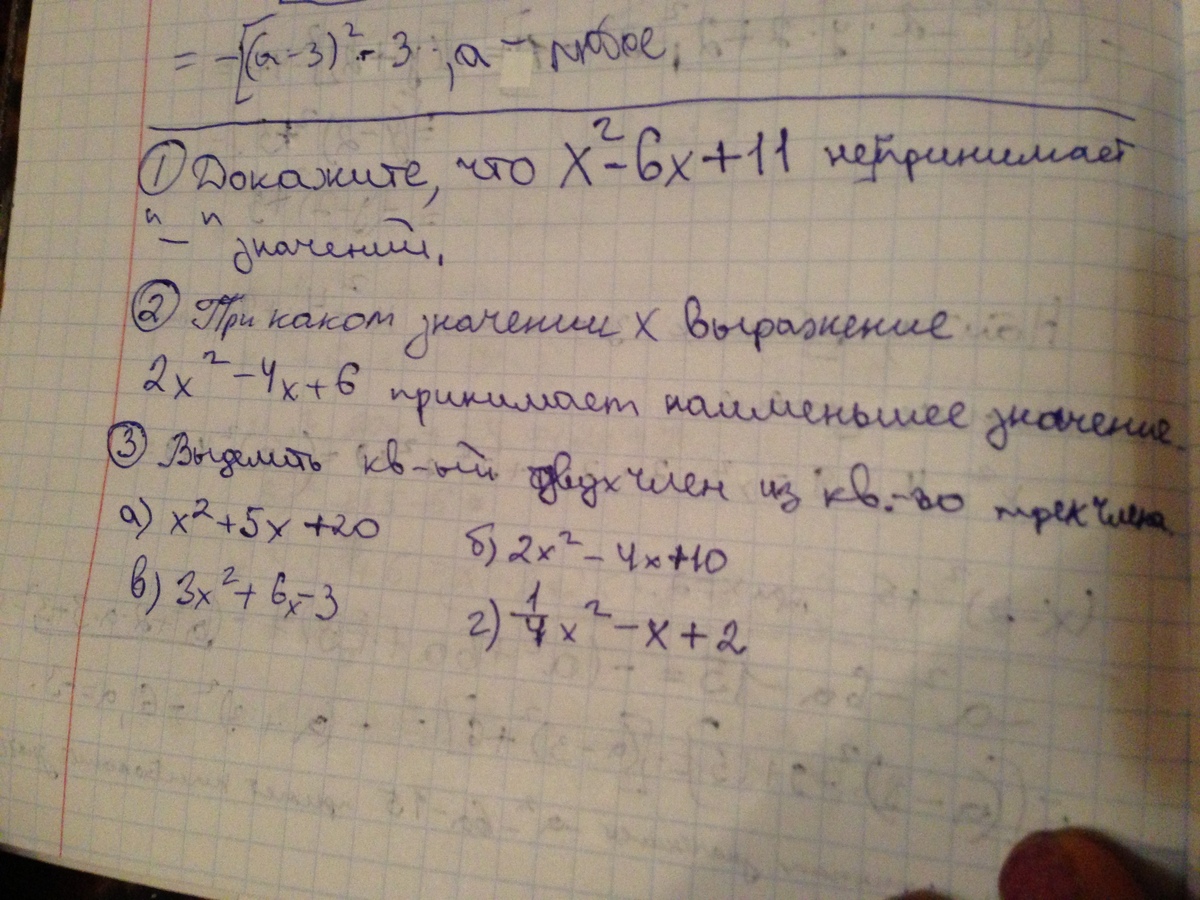 = -[(a-3)² - 3 ; a - любое.
① Докажите, что x²-6x+11 не принимает
"-" значений.
② При каком значении x выражение
2x²-4x+6 принимает наименьшее значение.
③ Выделить кв-ый двухчлен из кв.-го трехчлена
а) x²+5x+20 б) 2x²-4x+10
в) 3x²+6x-3 г) 1/4 x²-x+2